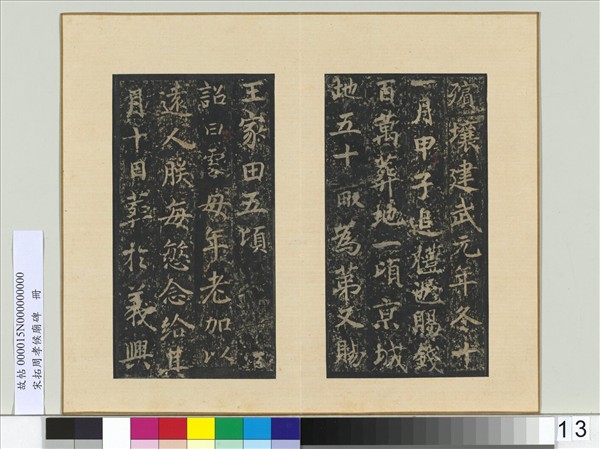 殯壤建武元年冬十
一月甲子追禮遇賜錢
百萬葬地一頃京城
地五十畝為苐又賜
王家田五頃
詔曰處母年老加以
遠人朕每愍念給其
月十日葬於義興
故帖 000015N000000000
宋拓周孝候廟碑 冊
13